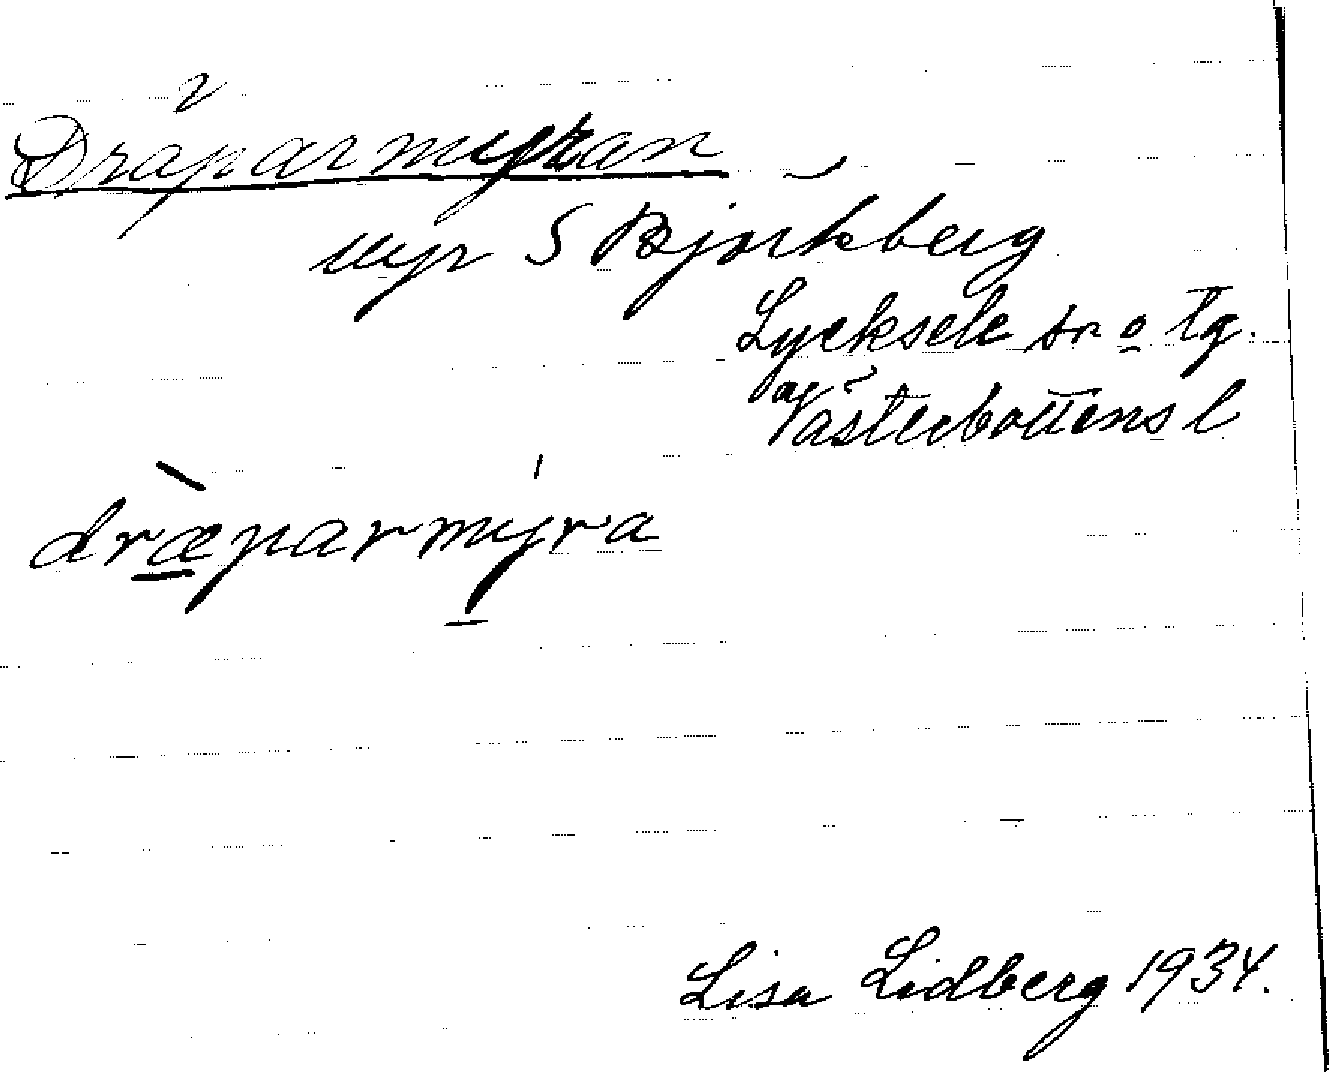 Dräparmyran
myr S Björkberg
Lycksele sn o tg.
av Västerbottens l
dræparmyra
Lisa Lidberg 1934.